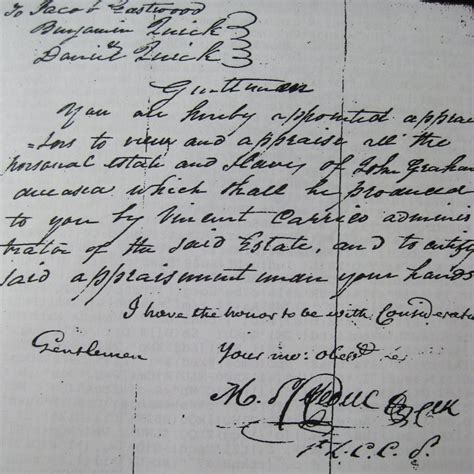 To Jacob Eastwood
Benjamin Quick
Daniel Quick
Gentleman
You are hereby appointed apprai
=sors to view and appraise all the
personal estate and Slaves of John Graham
deceased which shall be produced
to you by Vincent Carrico adminis
trator of the said Estate, and to certify
said appraisement under your hands
I have the honor to be with Considerat
Gentlemen Your mo: obed
M.